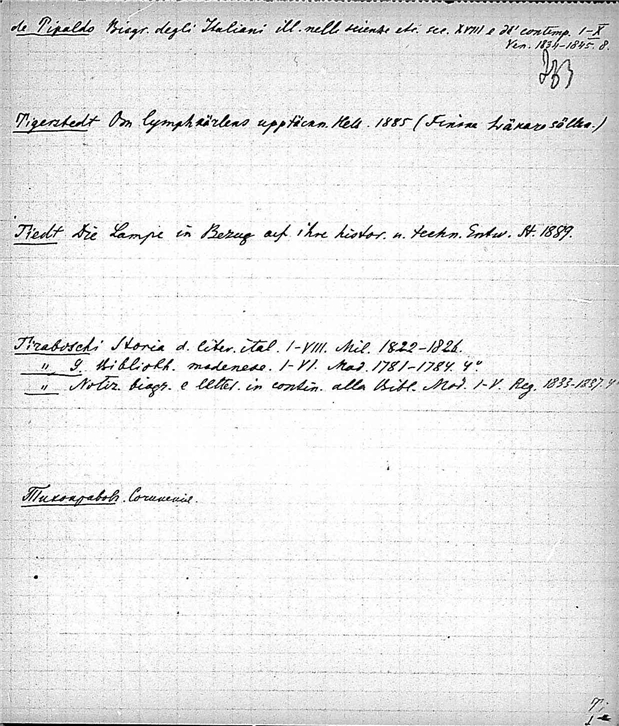 de Tipaldo Biogr. degli Italiani ill. nelle scienze etc. sec. XVIII e de' contemp. I-X
Ven. 1834-1845. 8.
Tigerstedt Om lymphkärlens upptäckn. Hels. 1885 (Finska Läkaresällsk.)
Tiedt Die Lampe in Bezug auf ihre histor. u. techn. Entw. St. 1889.
Tiraboschi Storia d. liter. ital. I-VIII. Mil. 1822-1826.
" G. Biblioth. modenese. I-VI. Mod. 1781-1784. 4°
" Notiz. biogr. e letter. in contin. alla Bibl. Mod. I-V. Reg. 1833-1837. 4°
Тихонравовъ. Сочиненія.